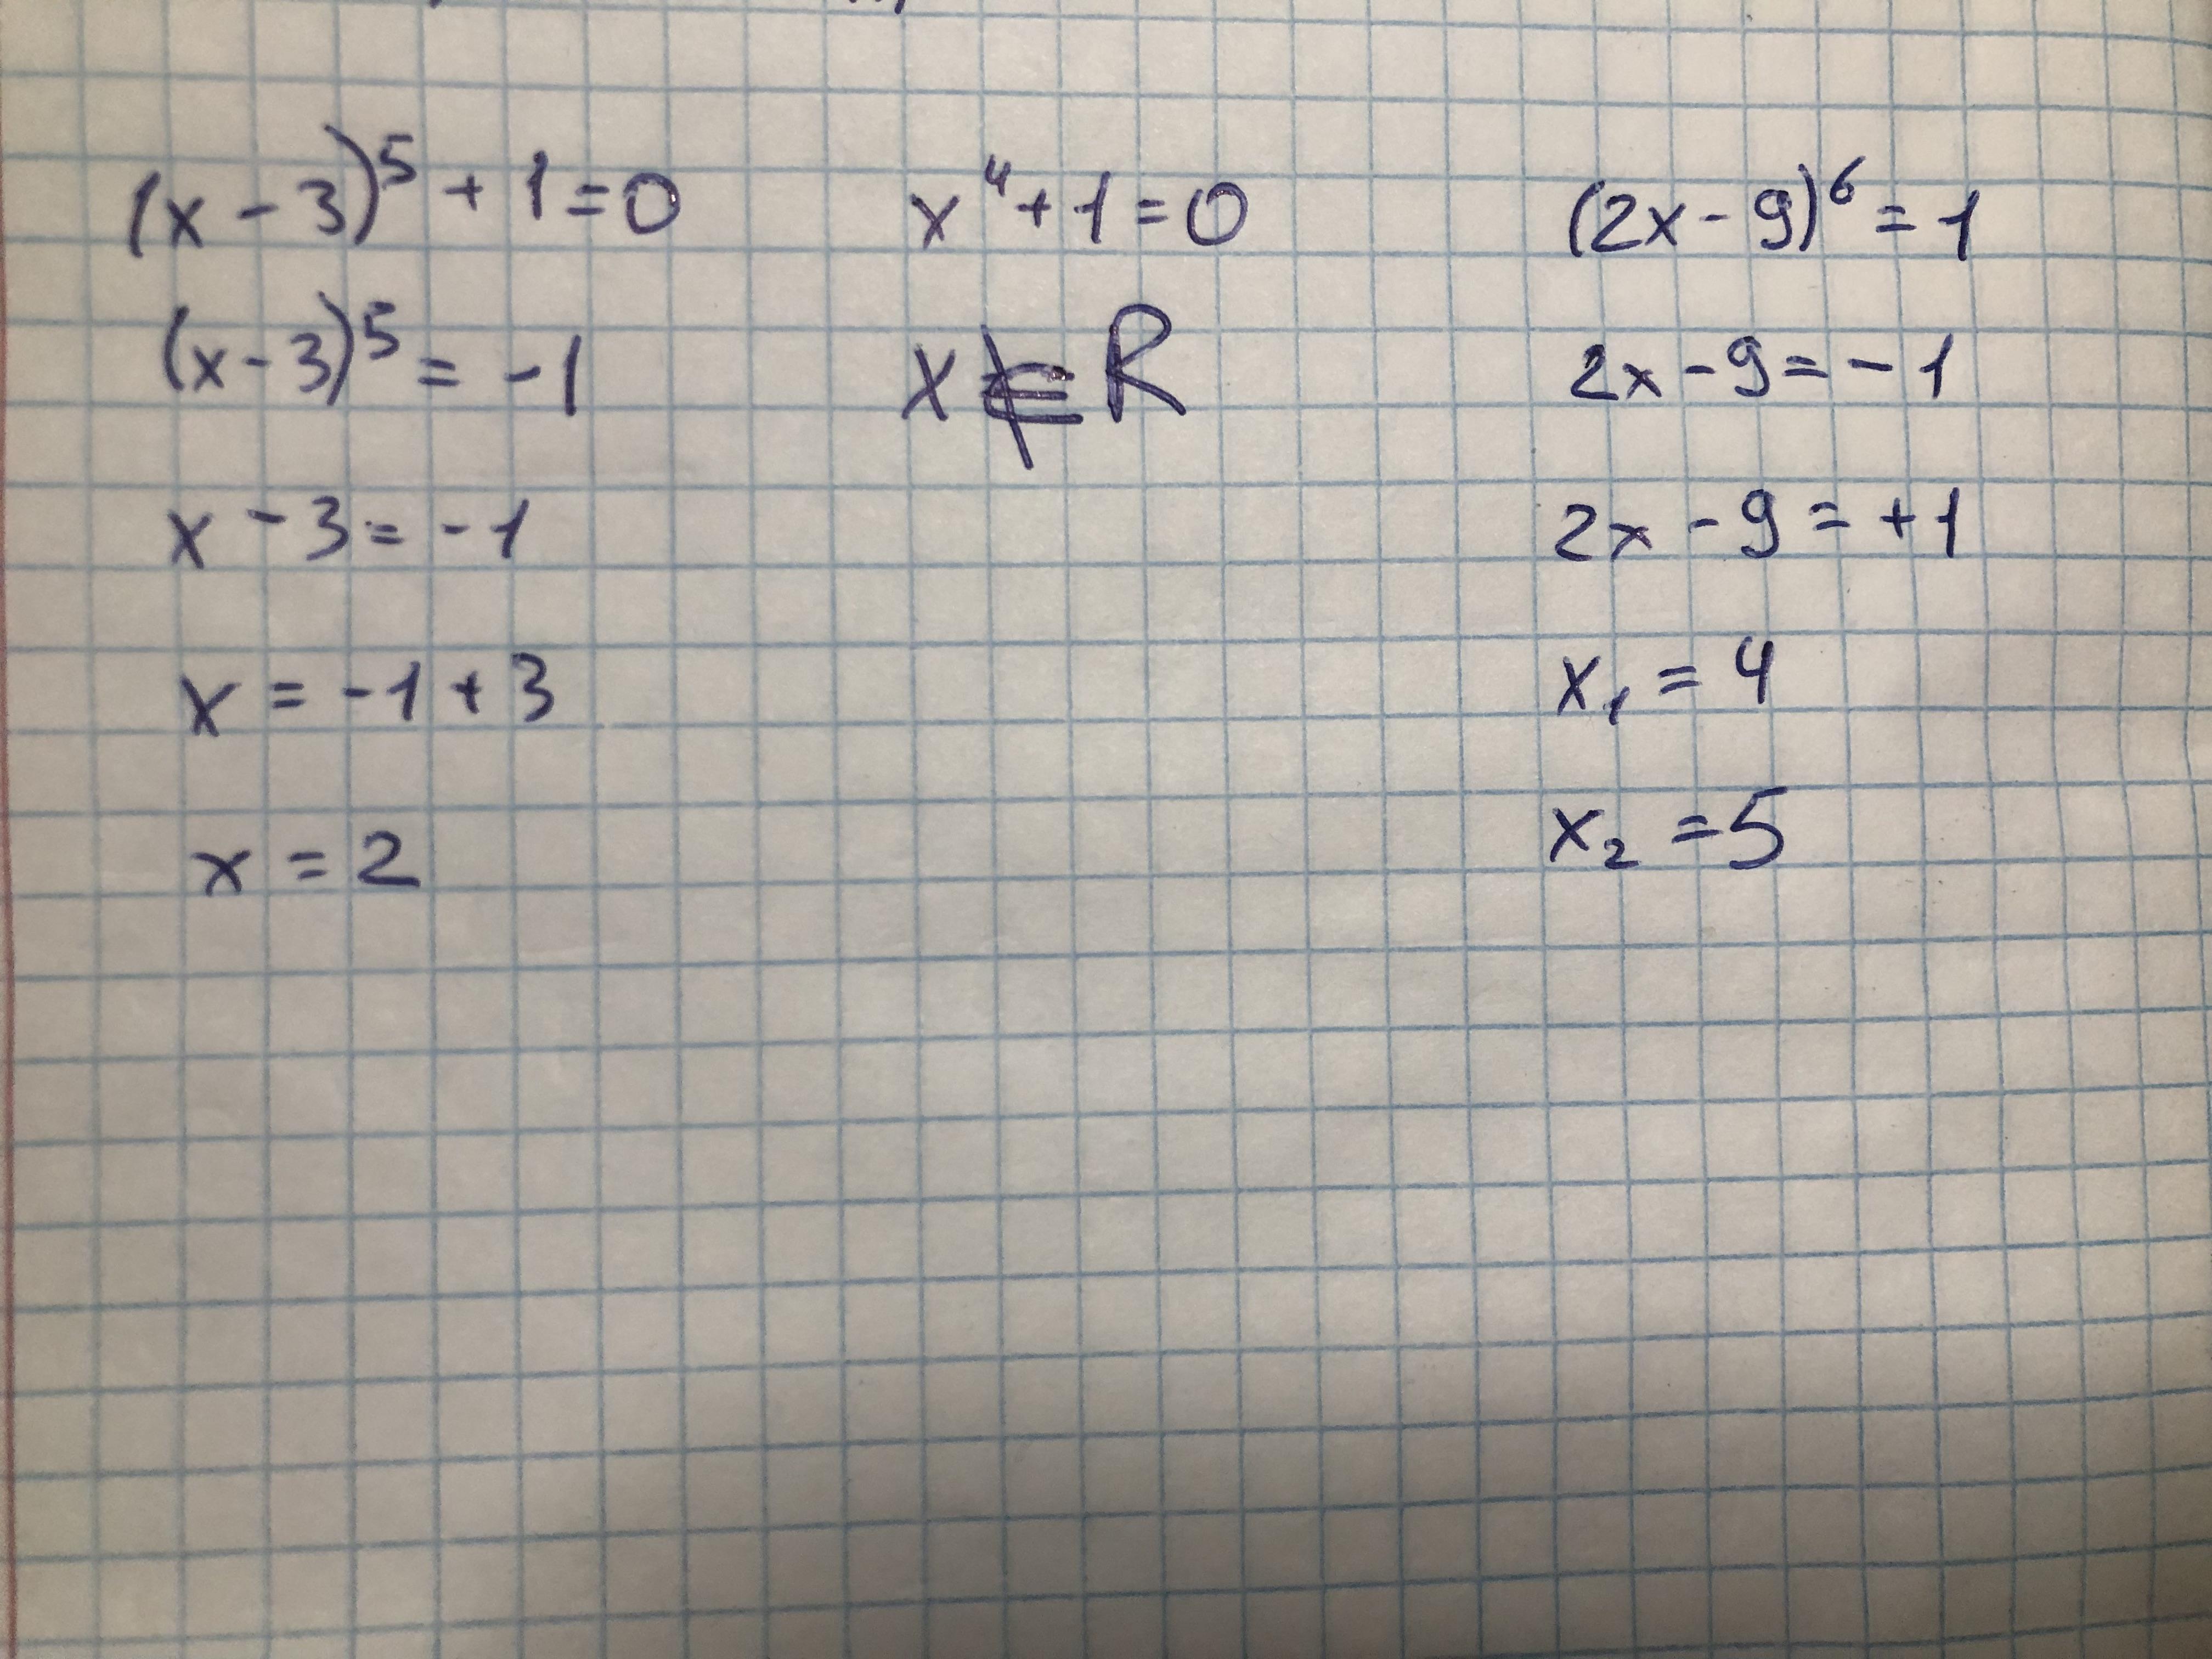 (x - 3)^5 + 1 = 0
(x - 3)^5 = -1
x - 3 = -1
x = -1 + 3
x = 2
x^4 + 1 = 0
x ∉ R
(2x - 9)^6 = 1
2x - 9 = -1
2x - 9 = +1
x₁ = 4
x₂ = 5